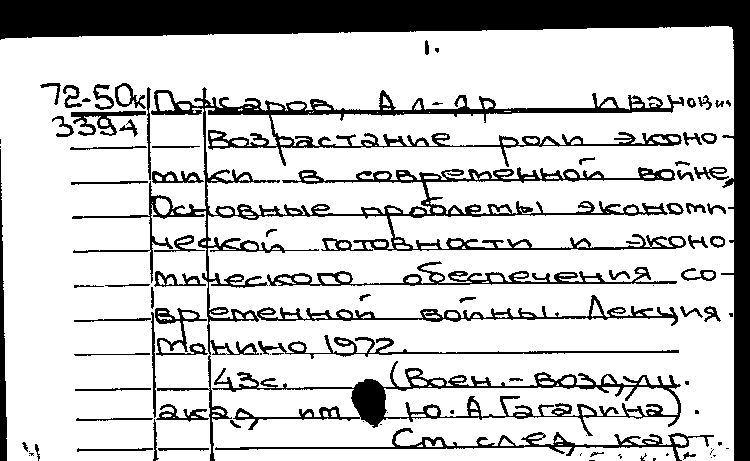 1.
72-50к Пожаров, Ал-др Иванович
3394
Возрастание роли эконо-
мики в современной войне.
Основные проблемы экономи-
ческой готовности и эконо-
мического обеспечения со-
временной войны. Лекция.
Монино, 1972.
43с. (Воен.-воздуш.
акад. им. Ю.А.Гагарина).
См. след. карт.